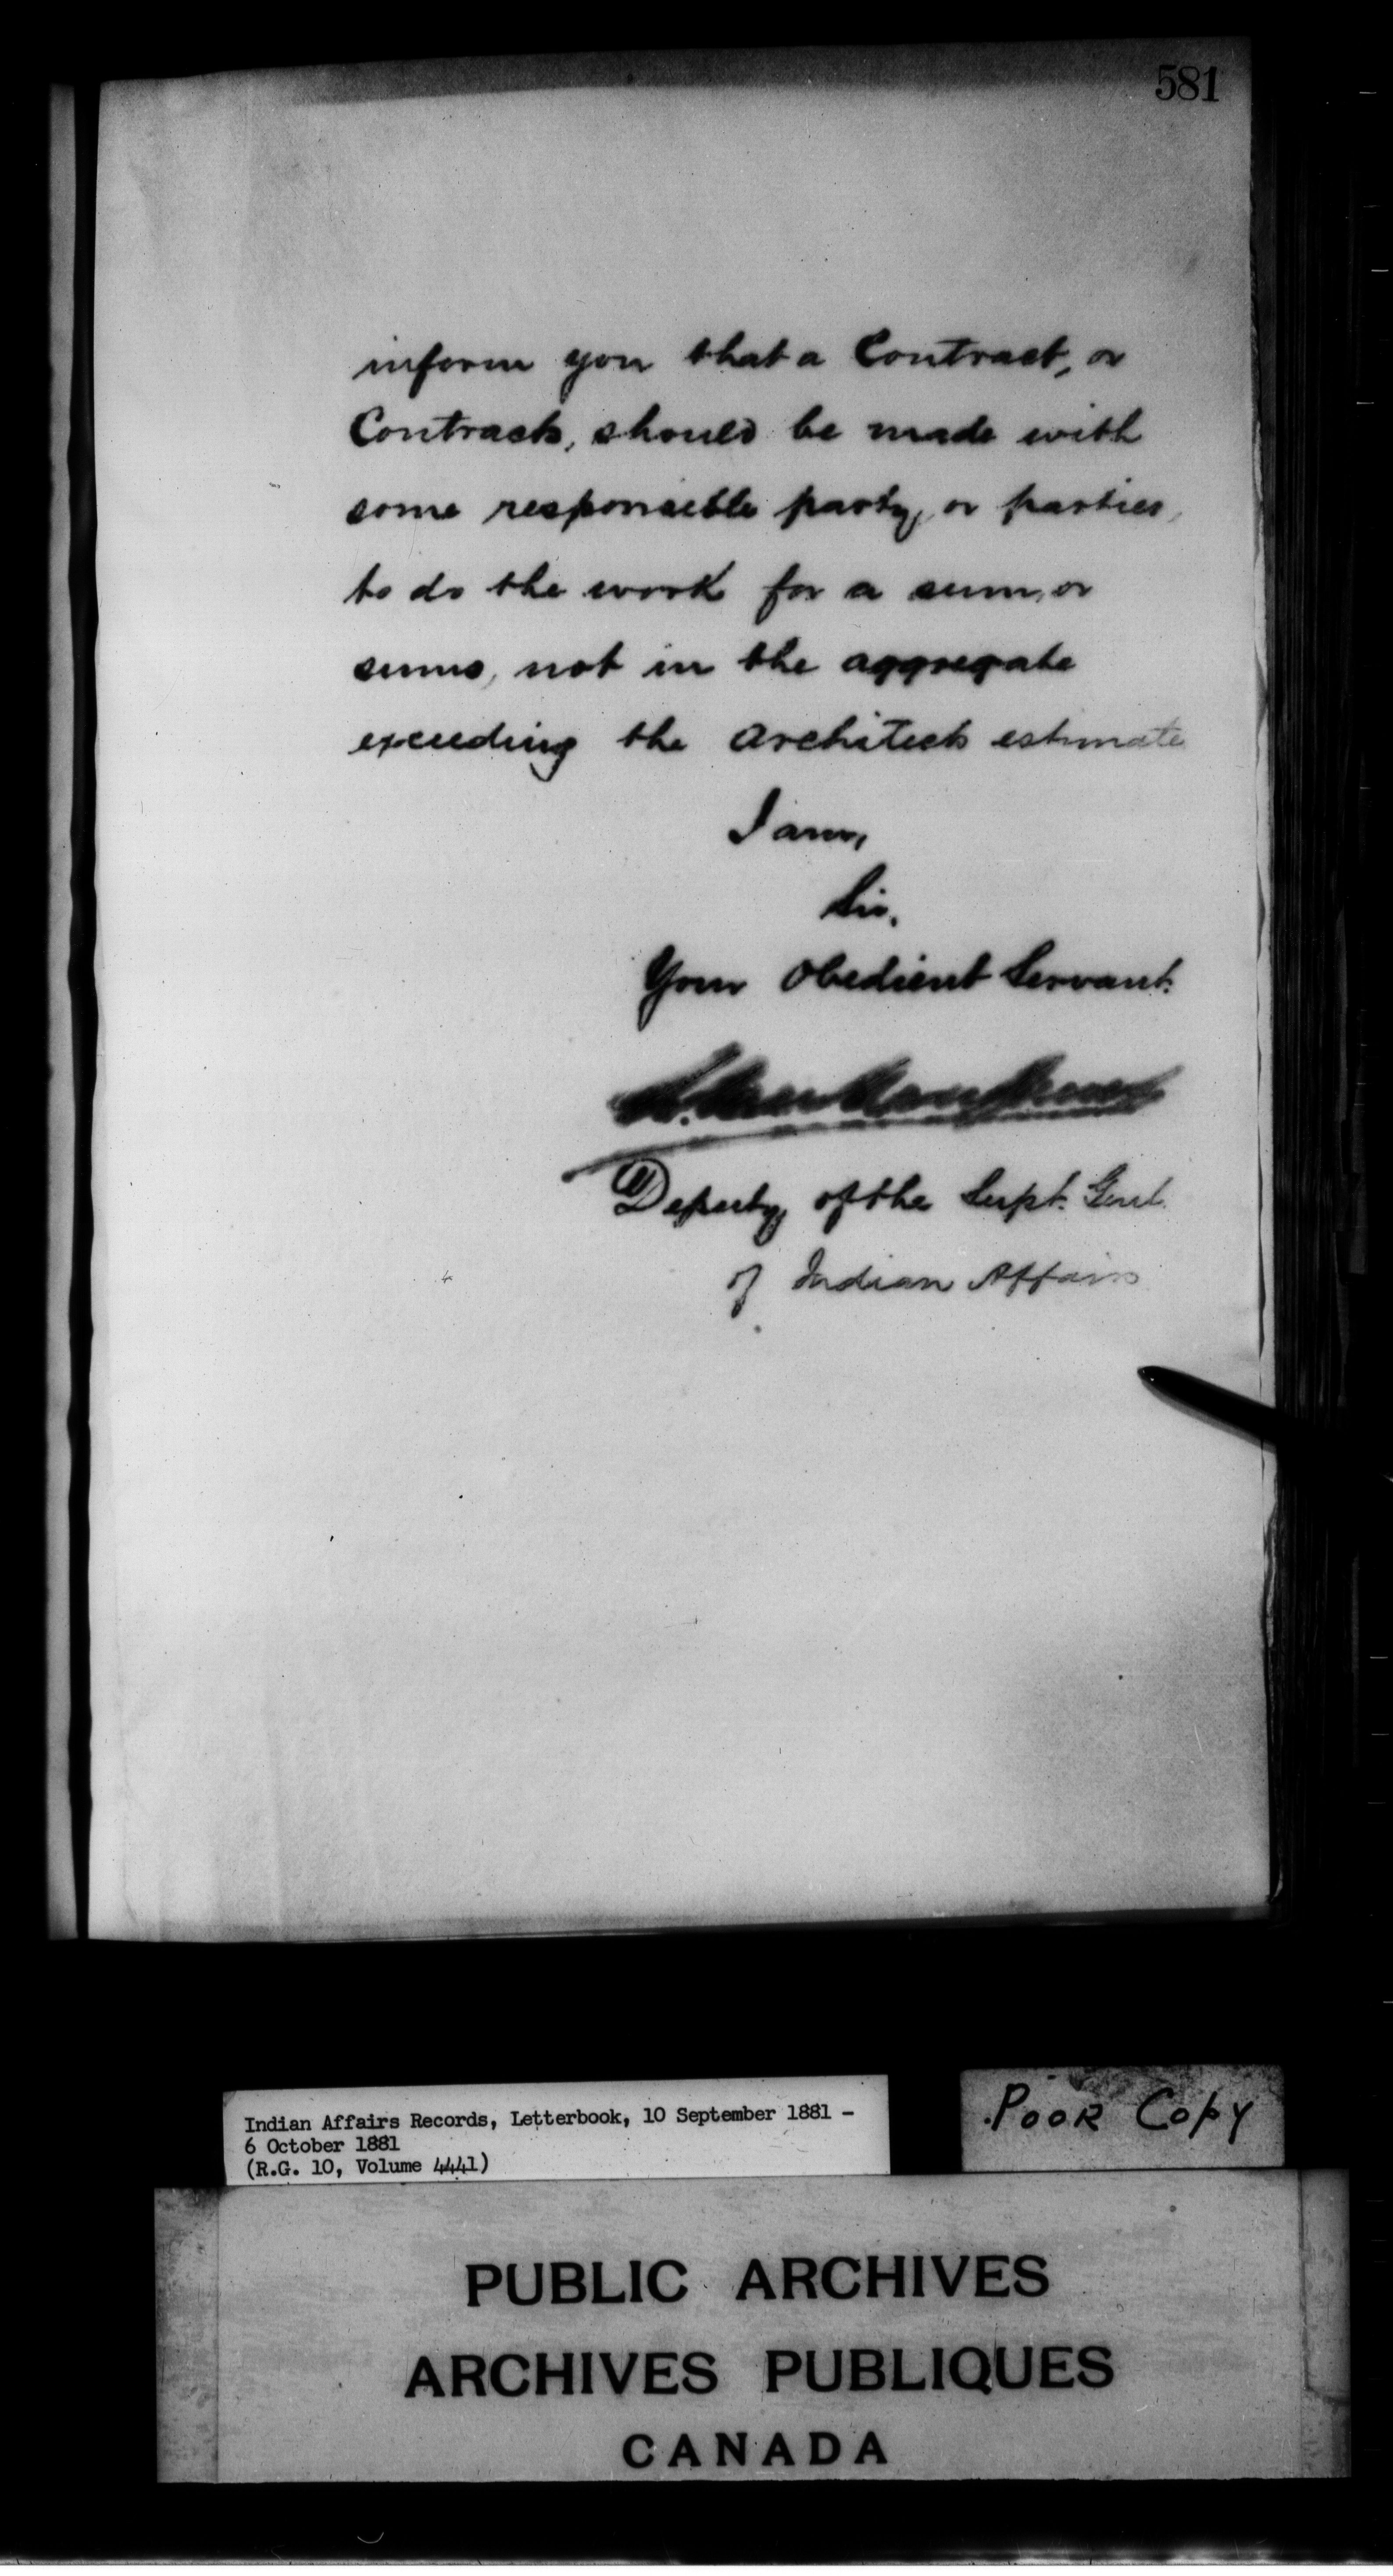 581
inform you that a Contract, or
Contracts, should be made with
some responsible party, or parties,
to do the work for a sum, or
sums, not in the aggregate
exceeding the Architects estimate
I am,
Sir,
Your Obedient Servant.
Deputy of the Supt. Genl.
of Indian Affairs
Indian Affairs Records, Letterbook, 10 September 1881 –
6 October 1881
(R.G. 10, Volume 4441)
Poor Copy
PUBLIC ARCHIVES
ARCHIVES PUBLIQUES
CANADA